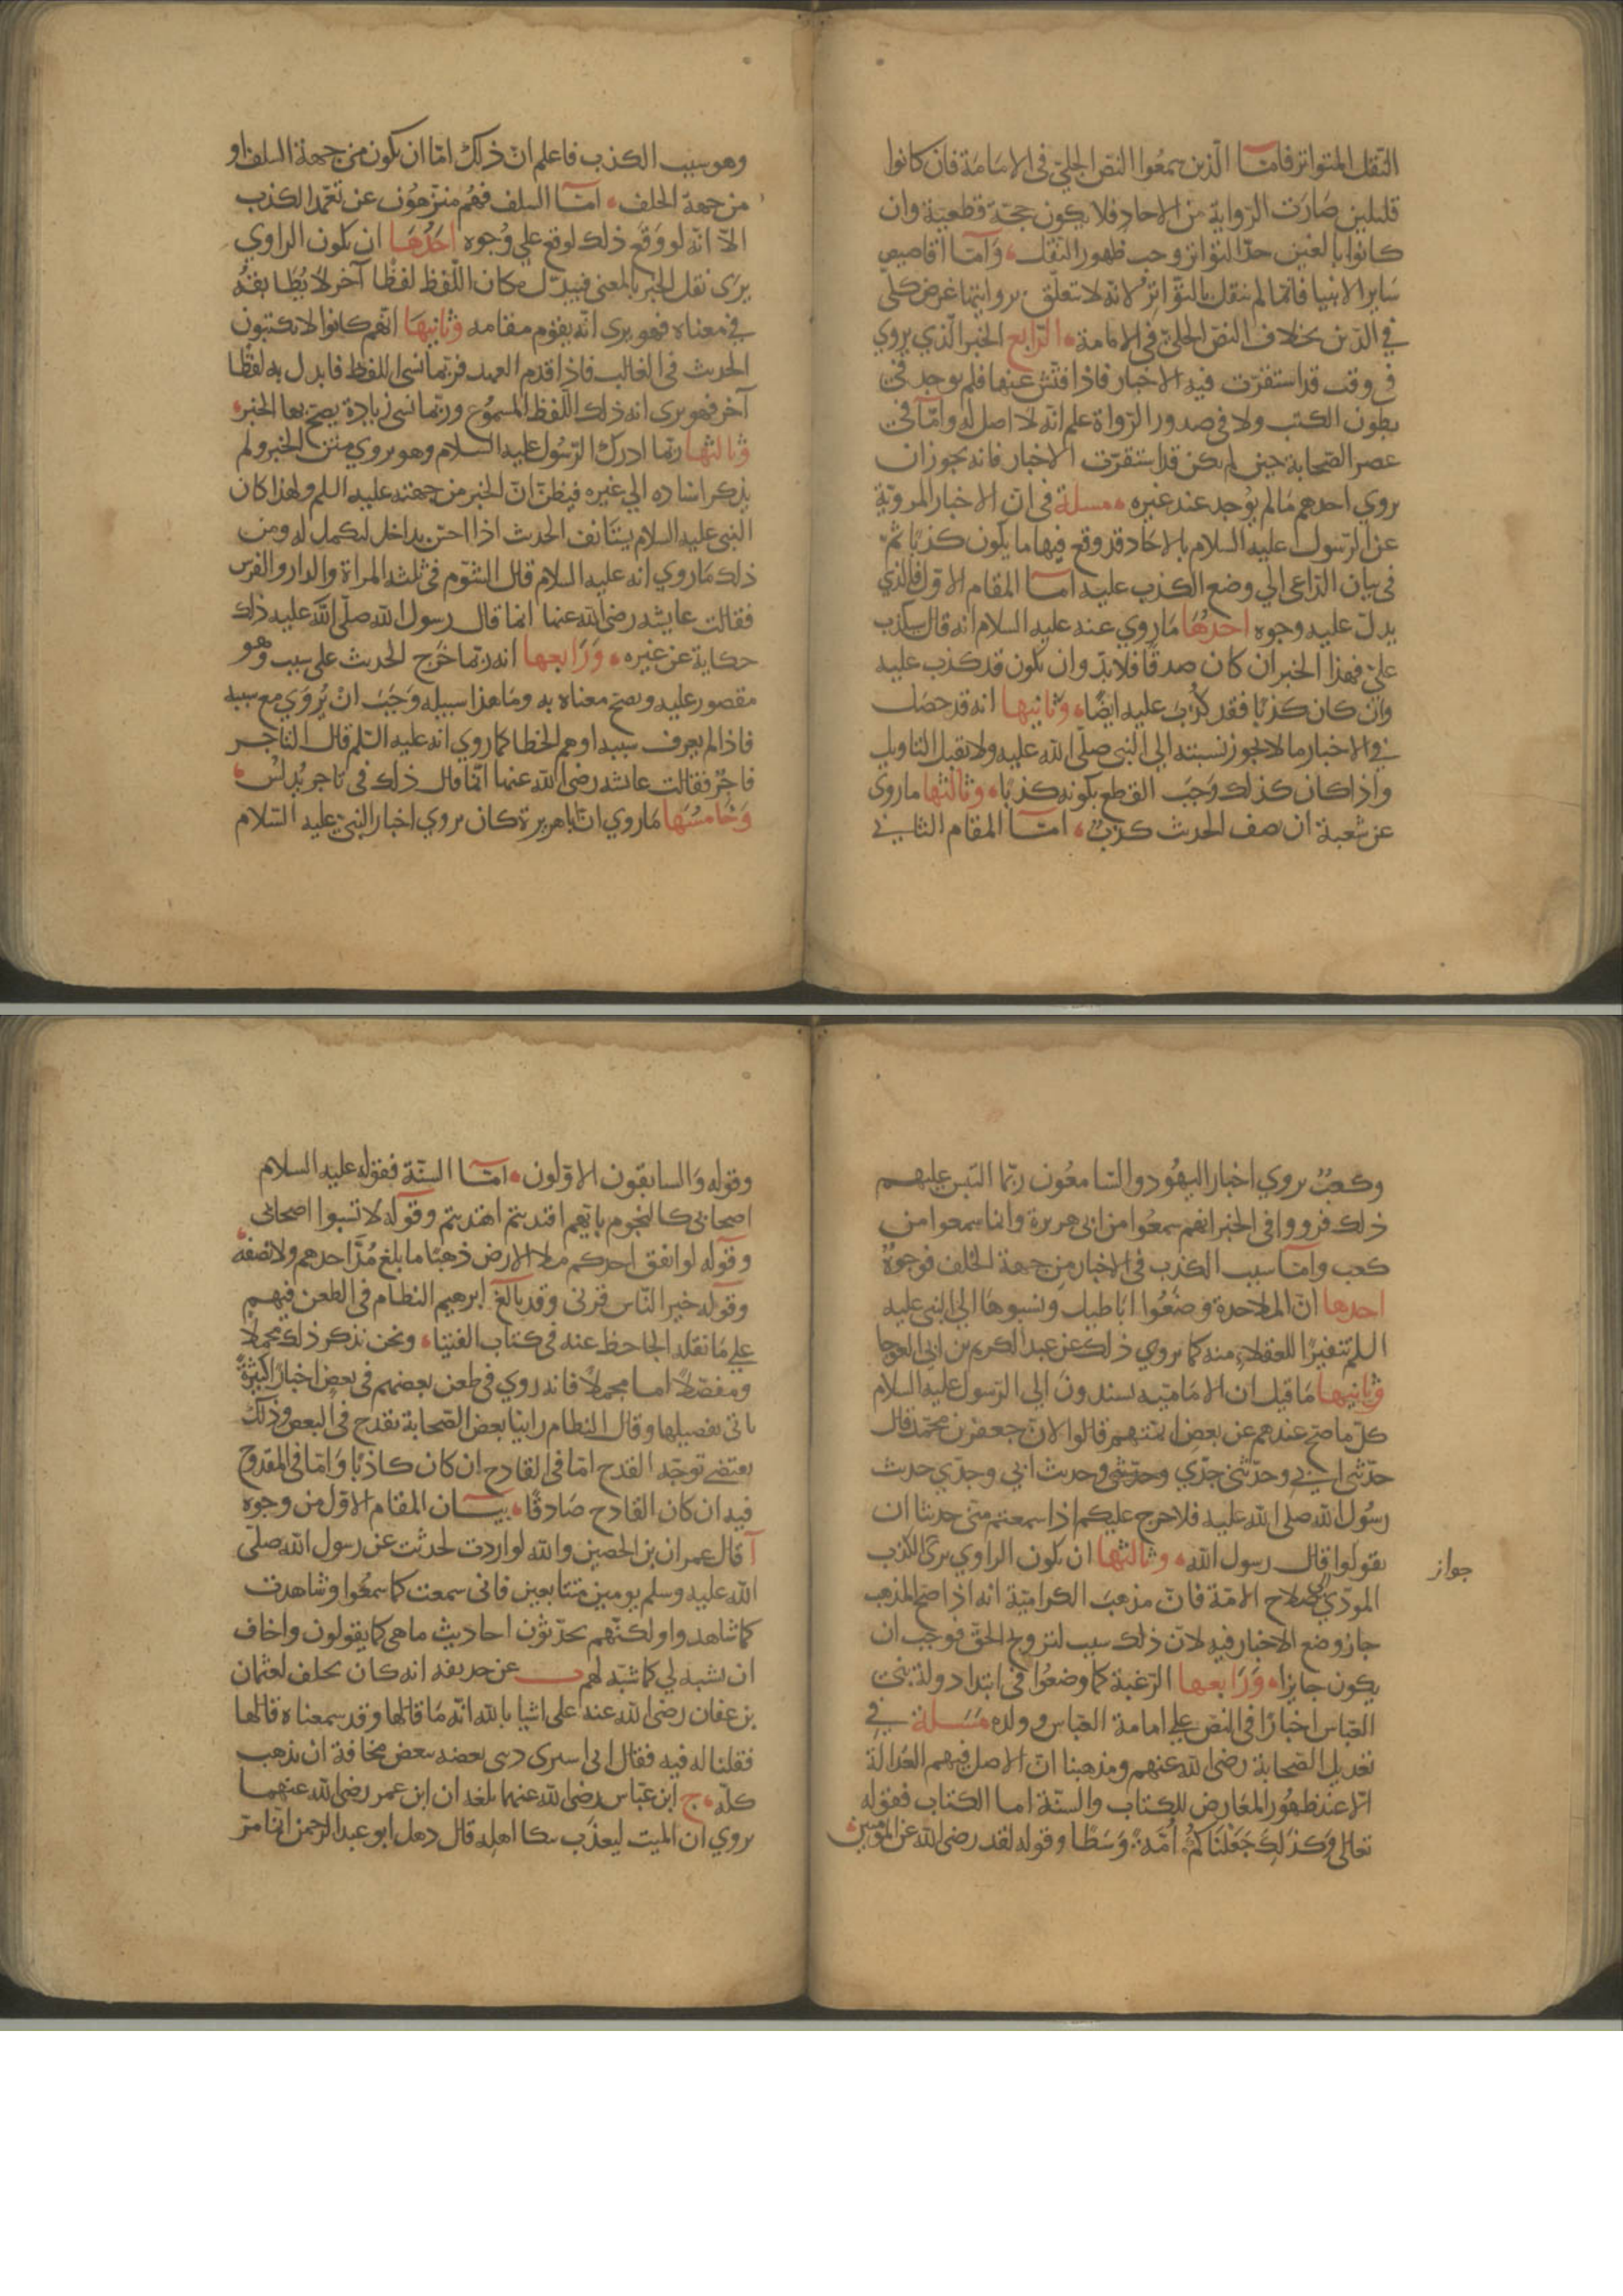 النقل المتواتر فامّا الّذين سمعُوا النصّ الجليّ في الامَامَة فان كانوا
قليلين صَارَت الرّواية من الاحاد فلا يكون حجّة قطعيّة وان
كانوا بالغين حدّ التواتر وجب ظهور النقل وَامّا اقاصيص
سَاير الانبيا فانّما لم ينقل بالتّواتر لانّه لا تتعلّق بروايتها غرض كلّي
في الدّين بخلاف النصّ الجليّ في الامامة الرّابع الخبر الّذي يروي
في وقت قد استقرّت فيه الاخبار فاذا فتّش عنها فلم يوجد في
بطون الكتب ولا في صدور الرّواة علم انّه لا اصل له وامّا في
عصر الصّحابة حين لم يكن قد استقرّت الاخبار فانه يجوز ان
يروي احدهم مَا لم يوُجد عند غيره مسلة في انّ الاخبار المرويّة
عن الرّسول عليه السلام بالاحَاد قد وقع فيها ما يكون كذبًا ثمّ
في بيان الدّاعي الي وضع الكذب عليه امّا المقام الاوّل فالذي
يدلّ عليه وجوه احدُهَا مَا روي عنه عليه السلام انه قال سيكذب
عليّ فهذا الخبر ان كان صدقًا فلا بدّ وان يكون قد كذب عليه
وان كان كذبًا فقد كُذبَ عليه ايضًا وثانيها انه قد حصَل
في الاخبار ما لا يجوز نسبته الي النبي صلّي الله عليه ولا تقبل التاويل
واذا كان كذلك وَجَبَ القطع بكونه كذبًا وثالثها ما روي
عن شعبة ان نصف الحديث كذبٌ امّا المقام الثاني
وهو سبب الكذب فاعلم انّ ذلك امّا ان يكون من جهة السلف او
من جهة الخلف امّا السلف فهُم منزّهوُن عن تعمّد الكذب
الّا انّه لو وَقع ذلك لوقع علي وُجوه احَدُهَا ان يكون الراوي
يرَى نقل الخبر بالمعنى فيبدّل مكان اللّفظ لفظًا آخر لا يُطَابقهُ
في معناه فهو يرى انّه يقوُم مقامه وثانيهَا انّهم كانوا لا يكتبون
الحديث في الغالب فاذا قدم العهد فربّما نسى اللفظ فابدل به لفظًا
آخر فهو يرى انه ذلك اللّفظ المسموُع وربّما نسى زيادة يصحّ بها الخبر
وثالثها ربّما ادرك الرّسُول عليه السلام وهو يروي متن الخبر ولم
يذكر اسناده الي غيره فيظنّ انّ الخبر من جهته عليه السلم ولهذا كان
النبى عليه السلام يستَانف الحديث اذا احسّ بداخل ليكمل له ومن
ذلك مَا روي انه عليه السلام قال الشوُم في ثلثه المراة والدار والفرس
فقالت عايشه رضى الله عنها انما قال رسول الله صلّى الله عليه ذلك
حكاية عن غيره وَرَابعها انه ربّما خرج الحديث على سبب وهو
مقصور عليه ويصحّ معناه به ومَا هذا سبيله وَجَبَ انْ يُروَي مع سببه
فاذا لم يعرف سببه اوهم الخطا كما روي انه عليه السّلم قال التاجر
فاجرٌ فقالت عايشه رضى الله عنها انّما قال ذلك في تاجر يُدلسُ
وَخَامسُهَا مَا روي انّ اباهريرة كان يروي اخبار النبيّ عليه السّلام
وكعبٌ يروي اخبار اليهُود والسَّامعُون ربّما التبس عليهم
ذلك فرووا في الخبر انهم سمعُوا من ابي هريرة وانما سمعوا من
كعب وامّا سبب الكذب في الاخبار من جهة الخلف فوجوهٌ
احدها انّ الملاحدة وضعُوا ابَاطيل ونسبوهَا الي النبي عليه
السلم تنفيرًا للعقلاء منه كما يروي ذلك عن عبد الكريم بن ابى العوجا
وثانيها مَا قيل ان الامَاميّه يسندونَ الي الرّسول عليه السلام
كلّ ما صحّ عندهم عن بعض ايمتهم قالوا لانّ جعفر بن محمّد قال
حدّثى ابي وحدّثني جدّي وحديثي وحديث ابي وحديث جدّي حديث
رسُول الله صلى الله عليه فلا حرج عليكم اذا سمعتم منّي حديثا ان
يقولوا قال رسول الله وثالثها ان يكون الراوي يرى الكذب
جواز
المودّي الى صلاح الامّة فانّ مذهبَ الكراميّة انه اذا صحّ المذهب
جاز وضع الاخبار فيه لانّ ذلك سبب لترويج الحقّ فوجب ان
يكون جايزا وَرَابعها الرّغبة كما وضعُوا في ابتدا دولة بني
العبّاس اخبارًا في النصّ علي امامة العبّاس وولده مَسَلة في
تعديل الصّحابة رضى الله عنهم ومذهبنا انّ الاصل فيهم العَدالة
الّا عند ظهُور المعَارض للكتاب والسنّة اما الكتاب فقوله
تعالى وَكذلِكَ جَعَلنَاكُمْ اُمّةً وَسَطًا وقوله لقد رضى الله عن المؤمنين
وقوله وَالسابقون الاوّلون امّا السنّة فقوله عليه السلام
اصحابي كالنجوم بايّهم اقتديتم اهتديتم وقوله لا تسبوا اصحابي
وقوله لو انفق احدكم ملا الارض ذهبًا ما بلغ مُدّ احدهم ولا نصفه
وقوله خير النّاس قرني وقد بالغ ابرهيم النظام في الطعن فيهم
على مَا نقله الجاحظ عنه في كتاب الفتيا ونحن نذكر ذلك مجملًا
ومفصّلًا امّا مجملًا فانه روي في طعن بعضهم في بعض اخبارًا كثيرةً
ياتي تفصيلها وقال النظام راينا بعض الصّحابة يقدح في البعض وذلك
يقتضي توجّه القدح امّا في القادح ان كان كاذبًا وَامّا في المقدوح
فيه ان كان القادح صَادقًا بيان المقام الاوّل من وجوه
آ قال عمران بن الحصين والله لو اردت لحدّثت عن رسول الله صلّى
الله عليه وسلم يومين متتابعين فانى سمعت كما سمعُوا وشاهدت
كما شاهدوا ولكنّهم يحدّثوُن احاديث ما هى كما يقولون واخاف
ان يشبه لي كما شبّه لهم ب عن حذيفه انه كان يحلف لعثمان
بن عفان رضى الله عنه على اشيا بالله انّه مَا قالها وقد سمعناه قالها
فقلنا له فيه فقال انى اسرى دىى بعضه ببعض مخافة ان يذهب
كلّه ج ابن عبّاس رضى الله عنهما بلغه ان ابن عمر رضى الله عنهما
يروي ان الميت ليعذّب ببكا اهله قال ذهل ابو عبد الرّحمن انّما مرّ